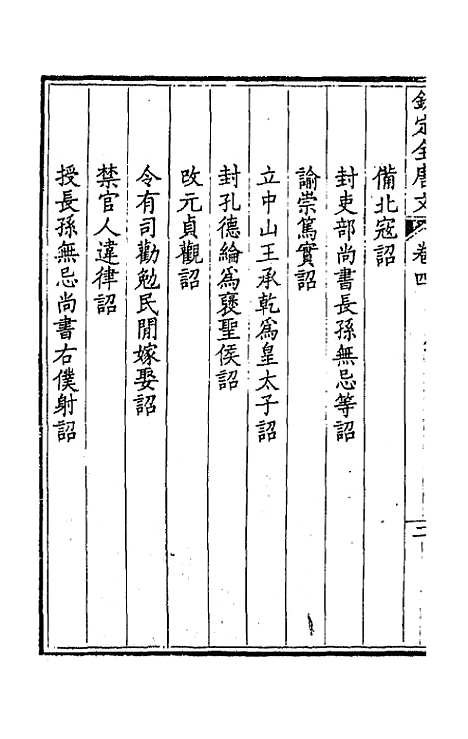 欽定全唐文 卷四
二
備北寇詔
封吏部尚書長孫無忌等詔
諭崇篤實詔
立中山王承乾爲皇太子詔
封孔德綸爲褒聖侯詔
改元貞觀詔
令有司勸勉民閒嫁娶詔
禁官人違律詔
授長孫無忌尚書右僕射詔